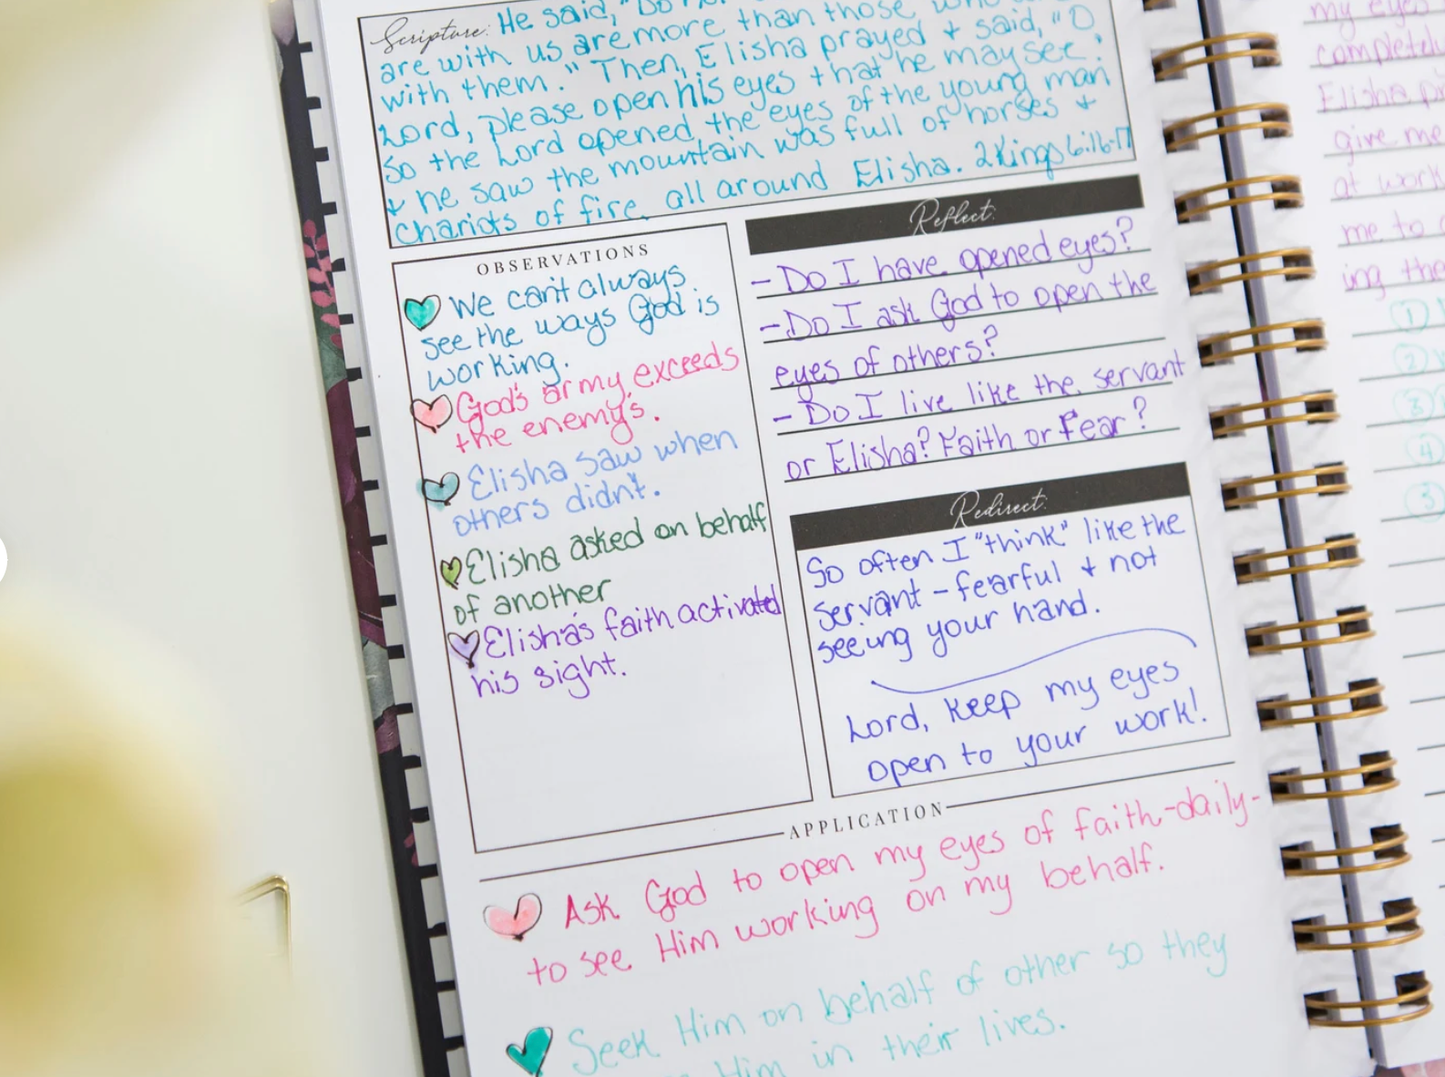 Scripture: He said, "Do
are with us are more than those who
with them." Then, Elisha prayed + said, "O
Lord, please open his eyes that he may see."
So the Lord opened the eyes of the young man
+ he saw the mountain was full of horses +
chariots of fire all around Elisha. 2 Kings 6:16-17
OBSERVATIONS
We can't always
see the ways God is
working.
God's army exceeds
the enemy's.
Elisha saw when
others didn't.
Elisha asked on behalf
of another
Elisha's faith activated
his sight.
Reflect:
- Do I have opened eyes?
- Do I ask God to open the
eyes of others?
- Do I live like the servant
or Elisha? Faith or Fear?
Redirect:
So often I "think" like the
servant - fearful + not
seeing your hand.
Lord, keep my eyes
open to your work!
APPLICATION
Ask God to open my eyes of faith -daily-
to see Him working on my behalf.
Seek Him on behalf of other so they
Him in their lives.
my eyes
completely
Elisha
give me
at work
me to
ing the
1
2
3
4
5